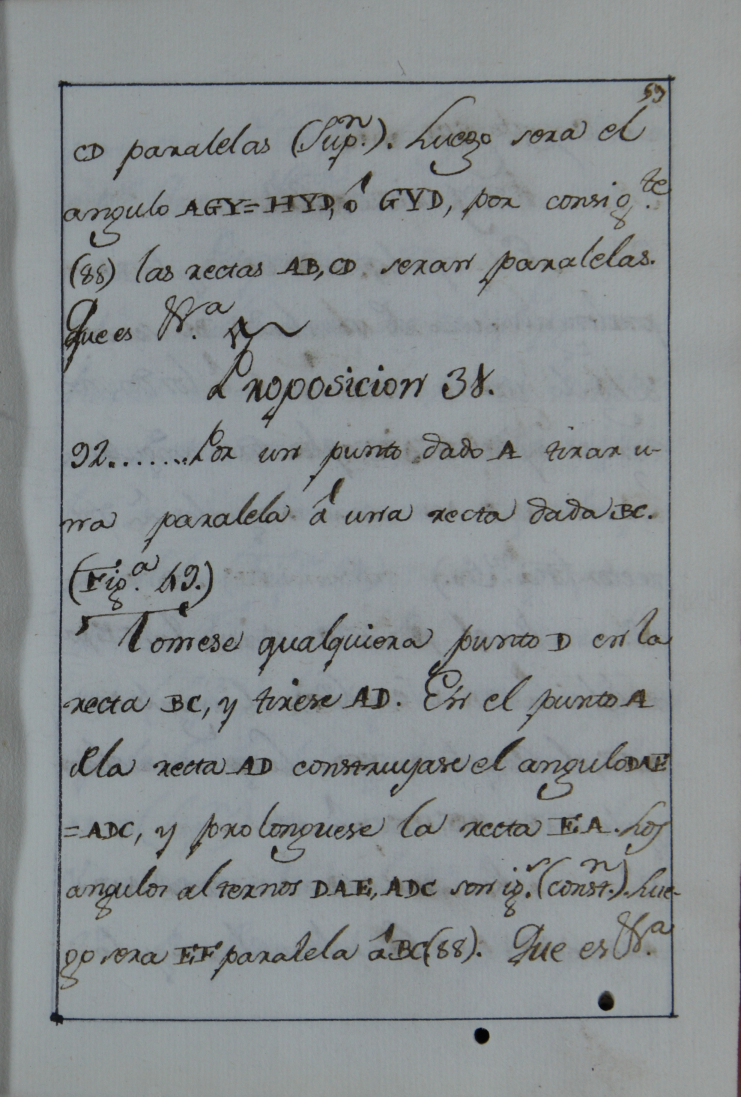 59
CD paralelas (Sup.n). Luego sera el
angulo AGY=HYD, ó GYD, por consig.te
(88) las rectas AB, CD seran paralelas.
Que es &.a
Proposicion 38.
92.......Por un punto dado A tirar u-
na paralela á una recta dada BC.
(Fig.a 49.)
Tomese qualquiera punto D en la
recta BC, y tirese AD. En el punto A
de la recta AD construyase el angulo DAE
=ADC, y prolonguese la recta EA. Los
angulos alternos DAE, ADC son ig.s (const.n). Lue-
go sera EF paralela á BC (88). Que es &.a